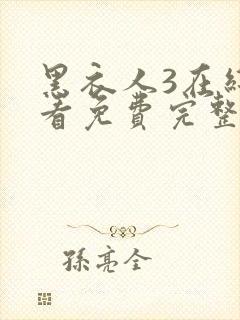 黑衣人3在线
看免费完整
孫亮全